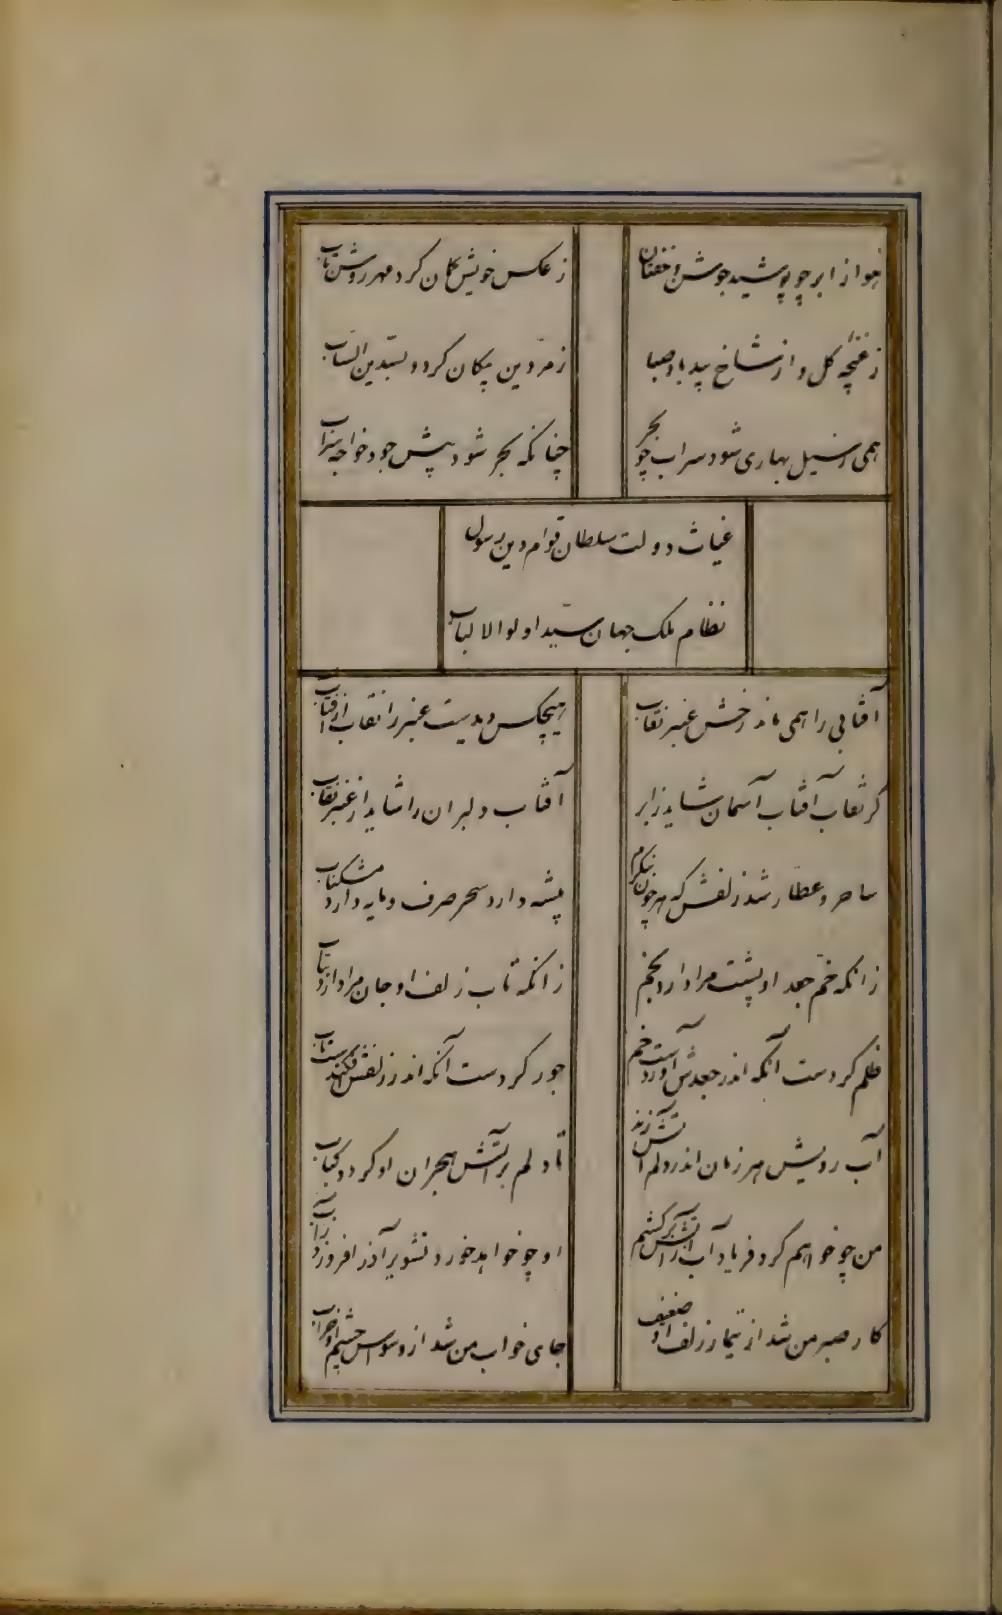 هوا ز ابر چو پوشید جوشن و خفتان
ز عکس خویش کمان کرد مهر روشن تاب
ز غنچه گل و از شاخ بید باد صبا
زمردین پیکان کرد و بسدین نشاب
همی ز سیل بهاری شود سراب چو بحر
چنانکه بحر شود پیش جود خواجه سراب
غیاث دولت سلطان قوام دین رسول
نظام ملک جهان سید اولوا الالباب
آفتابی را همی ماند رخش عنبر نقاب
هیچکس دیدست عنبر را نقاب از آفتاب
گر نقاب آفتاب آسمان شاید ز ابر
آفتاب دلبران را شاید از عنبر نقاب
ساحر و عطار شد زلفش که هر چون بنگرم
پیشه دارد سحر صرف و مایه دارد مشکناب
زانکه خم جعد او پشت مرا دارد بخم
زانکه تاب زلف او جان مرا دارد بتاب
ظلم کردست آنکه اندر جعدش آوردست خم
جور کردست آنکه اندر زلفش فکندست تاب
آب رویش هر زمان اندر دلم آتش زند
تا دلم بر آتش هجران او گردد کباب
من چو خواهم کرد فریاد آب از آتش برکشم
او چو خواهد خورد تشویر آذر افروزد ز آب
کار صبر من شد از تیمار زلف او ضعیف
جای خواب من شد از وسواس چشم او خراب